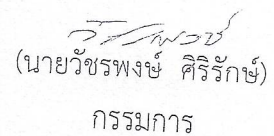 (นายวัชรพงษ์ ศิริรักษ์)
กรรมการ